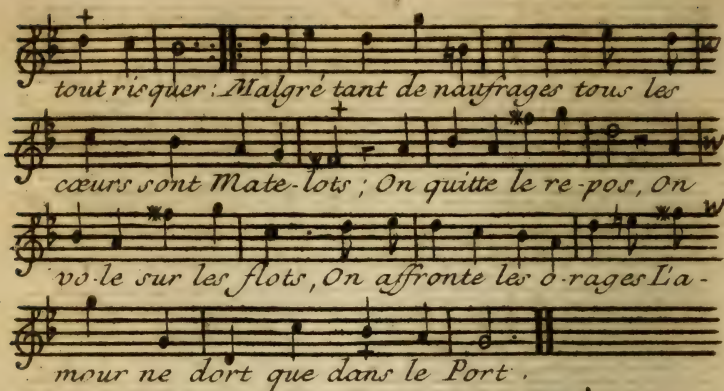 tout risquer: Malgré tant de naufrages tous les
cœurs sont Mate-lots; On quitte le re-pos, On
vo-le sur les flots, On affronte les o-rages L'a-
mour ne dort que dans le Port.